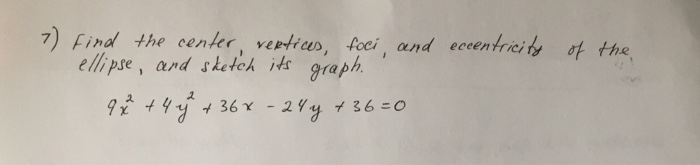 7) Find the center, vertices, foci, and eccentricity of the
ellipse, and sketch its graph.
9x² + 4y² + 36x - 24y + 36 = 0